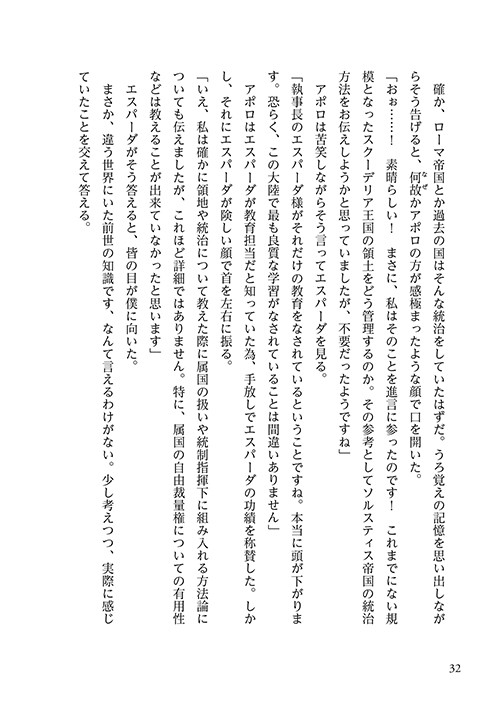 確か、ローマ帝国とか過去の国はそんな統治をしていたはずだ。うろ覚えの記憶を思い出しなが
らそう告げると、何故かアポロの方が感極まったような顔で口を開いた。
「おぉ……！　素晴らしい！　まさに、私はそのことを進言に参ったのです！　これまでにない規
模となったスクーデリア王国の領土をどう管理するのか。その参考としてソルスティス帝国の統治
方法をお伝えしようかと思っていましたが、不要だったようですね」
アポロは苦笑しながらそう言ってエスパーダを見る。
「執事長のエスパーダ様がそれだけの教育をなされているということですね。本当に頭が下がりま
す。恐らく、この大陸で最も良質な学習がなされていることは間違いありません」
アポロはエスパーダが教育担当だと知っていた為、手放しでエスパーダの功績を称賛した。しか
し、それにエスパーダが険しい顔で首を左右に振る。
「いえ、私は確かに領地や統治について教えた際に属国の扱いや統制指揮下に組み入れる方法論に
ついても伝えましたが、これほど詳細ではありません。特に、属国の自由裁量権についての有用性
などは教えることが出来ていなかったと思います」
エスパーダがそう答えると、皆の目が僕に向いた。
まさか、違う世界にいた前世の知識です、なんて言えるわけがない。少し考えつつ、実際に感じ
ていたことを交えて答える。
なぜ
32